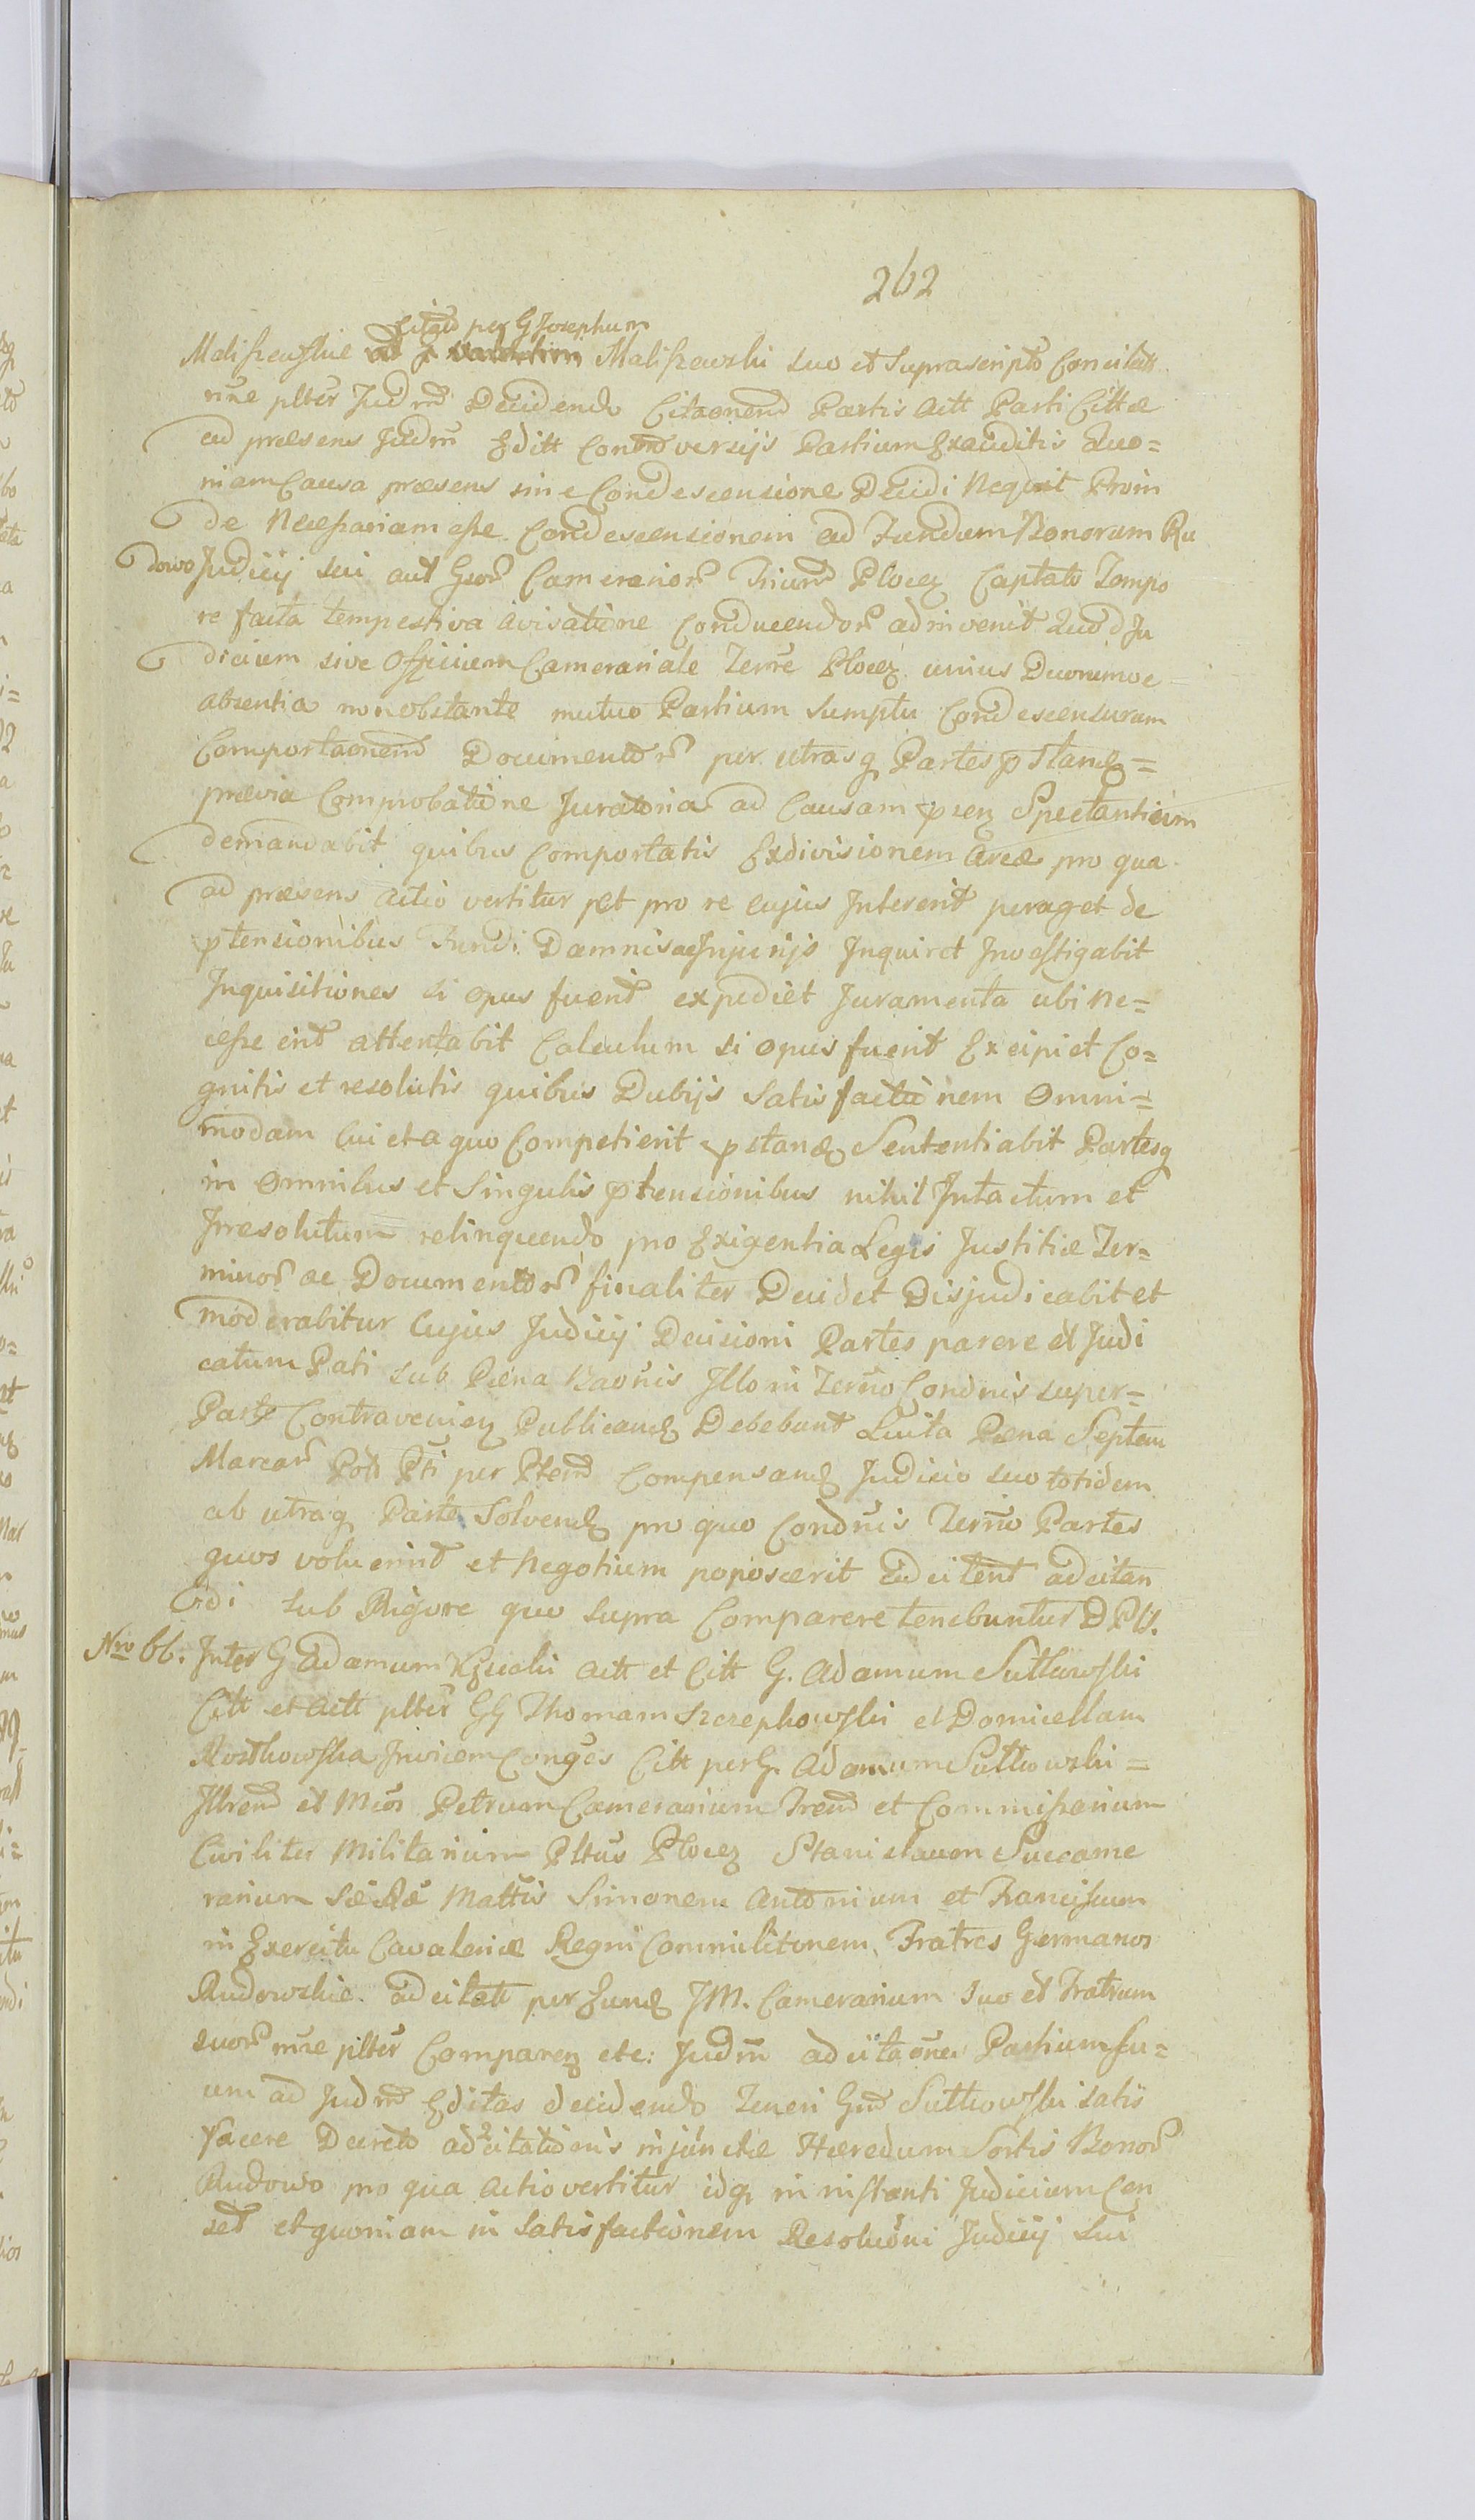 262
Citato per G Josephum
Maliszewskie Maliszewski suo et suprascripto Concitatt
nne plter Judm Decidendo Citaonem Partis Actt Parti Cittae
ad praesens Judm Editt Controversijs Partium Exauditis Quo=
niam Causa praesens sine Condescensione Decidi Nequit Proin
de Necessariam esse Condescensionem ad Fundum Bonorum Ru
dowo Judicij sui aut Gsor Camerarior Trium Plocen Captato Tempo
re facta tempestiva avisatione Conducendor adinvenit Quod Ju
dicium sive Officium Camerariale Terrae Plocen unius Duorumve
absentia non obstante mutuo Partium Sumptu Condescensuram
Comportaonem Documentor per utrasq Partes pstand=
praevia Comprobatione Juratoria ad Causam psen Spectantium
demandabit quibus Comportatis Exdivisionem Areae pro qua
ad praesens actio vertitur pet pro re cujus Intererit peraget de
ptensionibus Fundi Damnis ac Injurijs Inquiret Investigabit
Inquisitiones si opus fuerit expediet Juramenta ubi ne=
cesse erit attentabit Calculum si opus fuerit Excipiet Co=
gnitis et resolutis quibus Dubijs Satisfactionem Omni=
modam Cui et a quo Competierit pstand Sententiabit Partesq
in Omnibus et Singulis ptensionibus nihil Intactum et
Irresolutum relinquendo pro Exigentia Legis Justitiae Ter=
minor ac Documentor finaliter Decidet Disjudicabit et
moderabitur Cujus Judicij Decisioni Partes parere et Judi
catum Pati sub Paena Baonis Illo in Termo Condnis super=
Parte Contravenien Publicand Debebunt Luita Paena Septem
Marcar Pol Pti per Ptem Compensand Judicio suo totidem
ab utraq Parte Solvend pro quo Condnis Termo Partes
quos voluerint et Negotium poposcerit Adcitent adcitan
di sub Rigore quo supra Comparere tenebuntur DPV.
Nro 66. Inter G Adamum actt et Citt G. Adamum Sutkowski
Citt et Actt plter GG Thomam Szczepkowski et Domicellam
Rostkowska Invicem Conges Citt per G. Adamum Sutkowski=
Illrem et Mcos Petrum Camerarium Trem et Commissarium
Civiliter Militarium Pltus Plocen Stanislaum Succame
rarium Sae Rae Mattis Simonem Antonium et Franciscum
in Exercitu Cavaleriae Regni Commilitonem, Fratres Germanos
Rudowskie adcitatt per Eund JM. Camerarium suo et Fratrum
suor nne plter Comparen etc: Judm adcitaones Partium Su=
um ad Judm Editas decidendo Teneri Gnm Sutkowski satis
facere Decreto adcitationis injunctae Haeredum Sortis Bonor
Rudowo pro qua Actio vertitur idq in instanti Judicium Cen
set et quoniam in Satisfactionem Resoluoni Judicij Sui